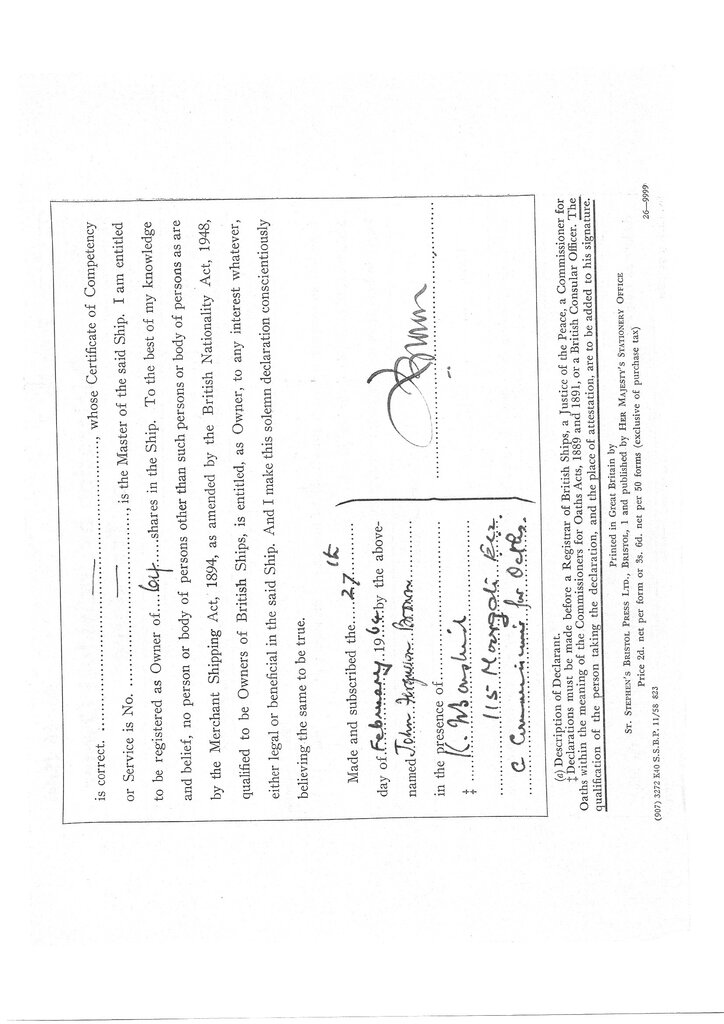 is correct. ...................., whose Certificate of Competency
or Service is No. ...................., is the Master of the said Ship. I am entitled
to be registered as Owner of....64.....shares in the Ship. To the best of my knowledge
and belief, no person or body of persons other than such persons or body of persons as are
by the Merchant Shipping Act, 1894, as amended by the British Nationality Act, 1948,
qualified to be Owners of British Ships, is entitled, as Owner, to any interest whatever,
either legal or beneficial in the said Ship. And I make this solemn declaration conscientiously
believing the same to be true.
Made and subscribed the....27th
day of February 1964 by the above-
named John Ferguson Brown
in the presence of
‡
115 Moorgate
a Commissioner for Oaths.
(e) Description of Declarant.
‡ Declarations must be made before a Registrar of British Ships, a Justice of the Peace, a Commissioner for
Oaths within the meaning of the Commissioners for Oaths Acts, 1889 and 1891, or a British Consular Officer. The
qualification of the person taking the declaration, and the place of attestation, are to be added to his signature.
Printed in Great Britain by
St. Stephen's Bristol Press Ltd., Bristol, 1 and published by Her Majesty's Stationery Office
Price 2d. net per form or 3s. 6d. net per 50 forms (exclusive of purchase tax)
(907) 3272 K40 S.S.B.P. 11/58 823
26—9999